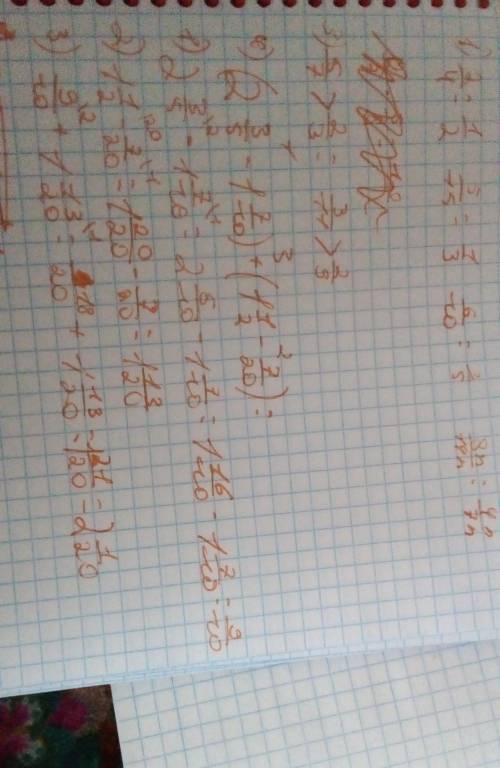 1) 2/4 = 1/2 5/15 = 1/3 6/10 = 3/5 8n/14n = 4n/7n
3) 5/7 > 2/3 = 3/11 > 2/9
4) (2 3/5 - 1 7/10) + (1 1/2 - 7/20) =
1) 2 3/5 - 1 7/10 = 2 6/10 - 1 7/10 = 1 16/10 - 1 7/10 = 9/10
2) 1 1/2 - 7/20 = 1 20/20 - 7/20 = 1 13/20
3) 9/10 + 1 13/20 = 18/20 + 1 13/20 = 1 21/20 = 2 1/20